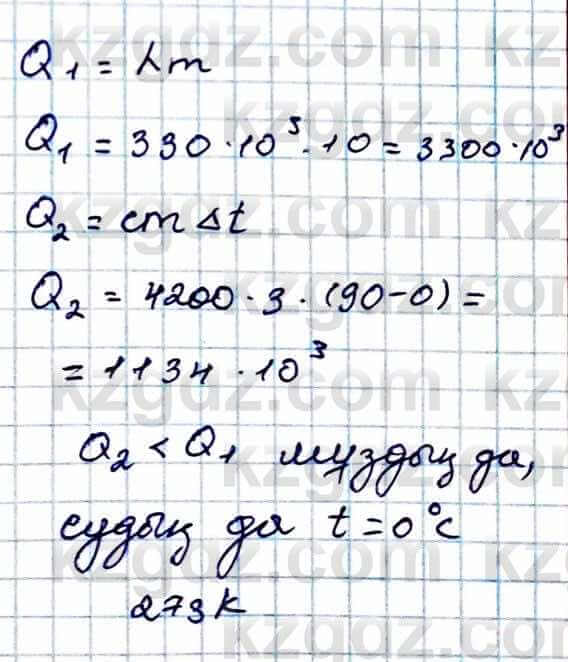 Q₁ = λm
Q₁ = 330 · 10³ · 10 = 3300 · 10³
Q₂ = cm Δt
Q₂ = 4200 · 3 · (90 - 0) =
= 1134 · 10³
Q₂ < Q₁ мұздың да,
судың да t = 0°C
273K
kzgdz.com